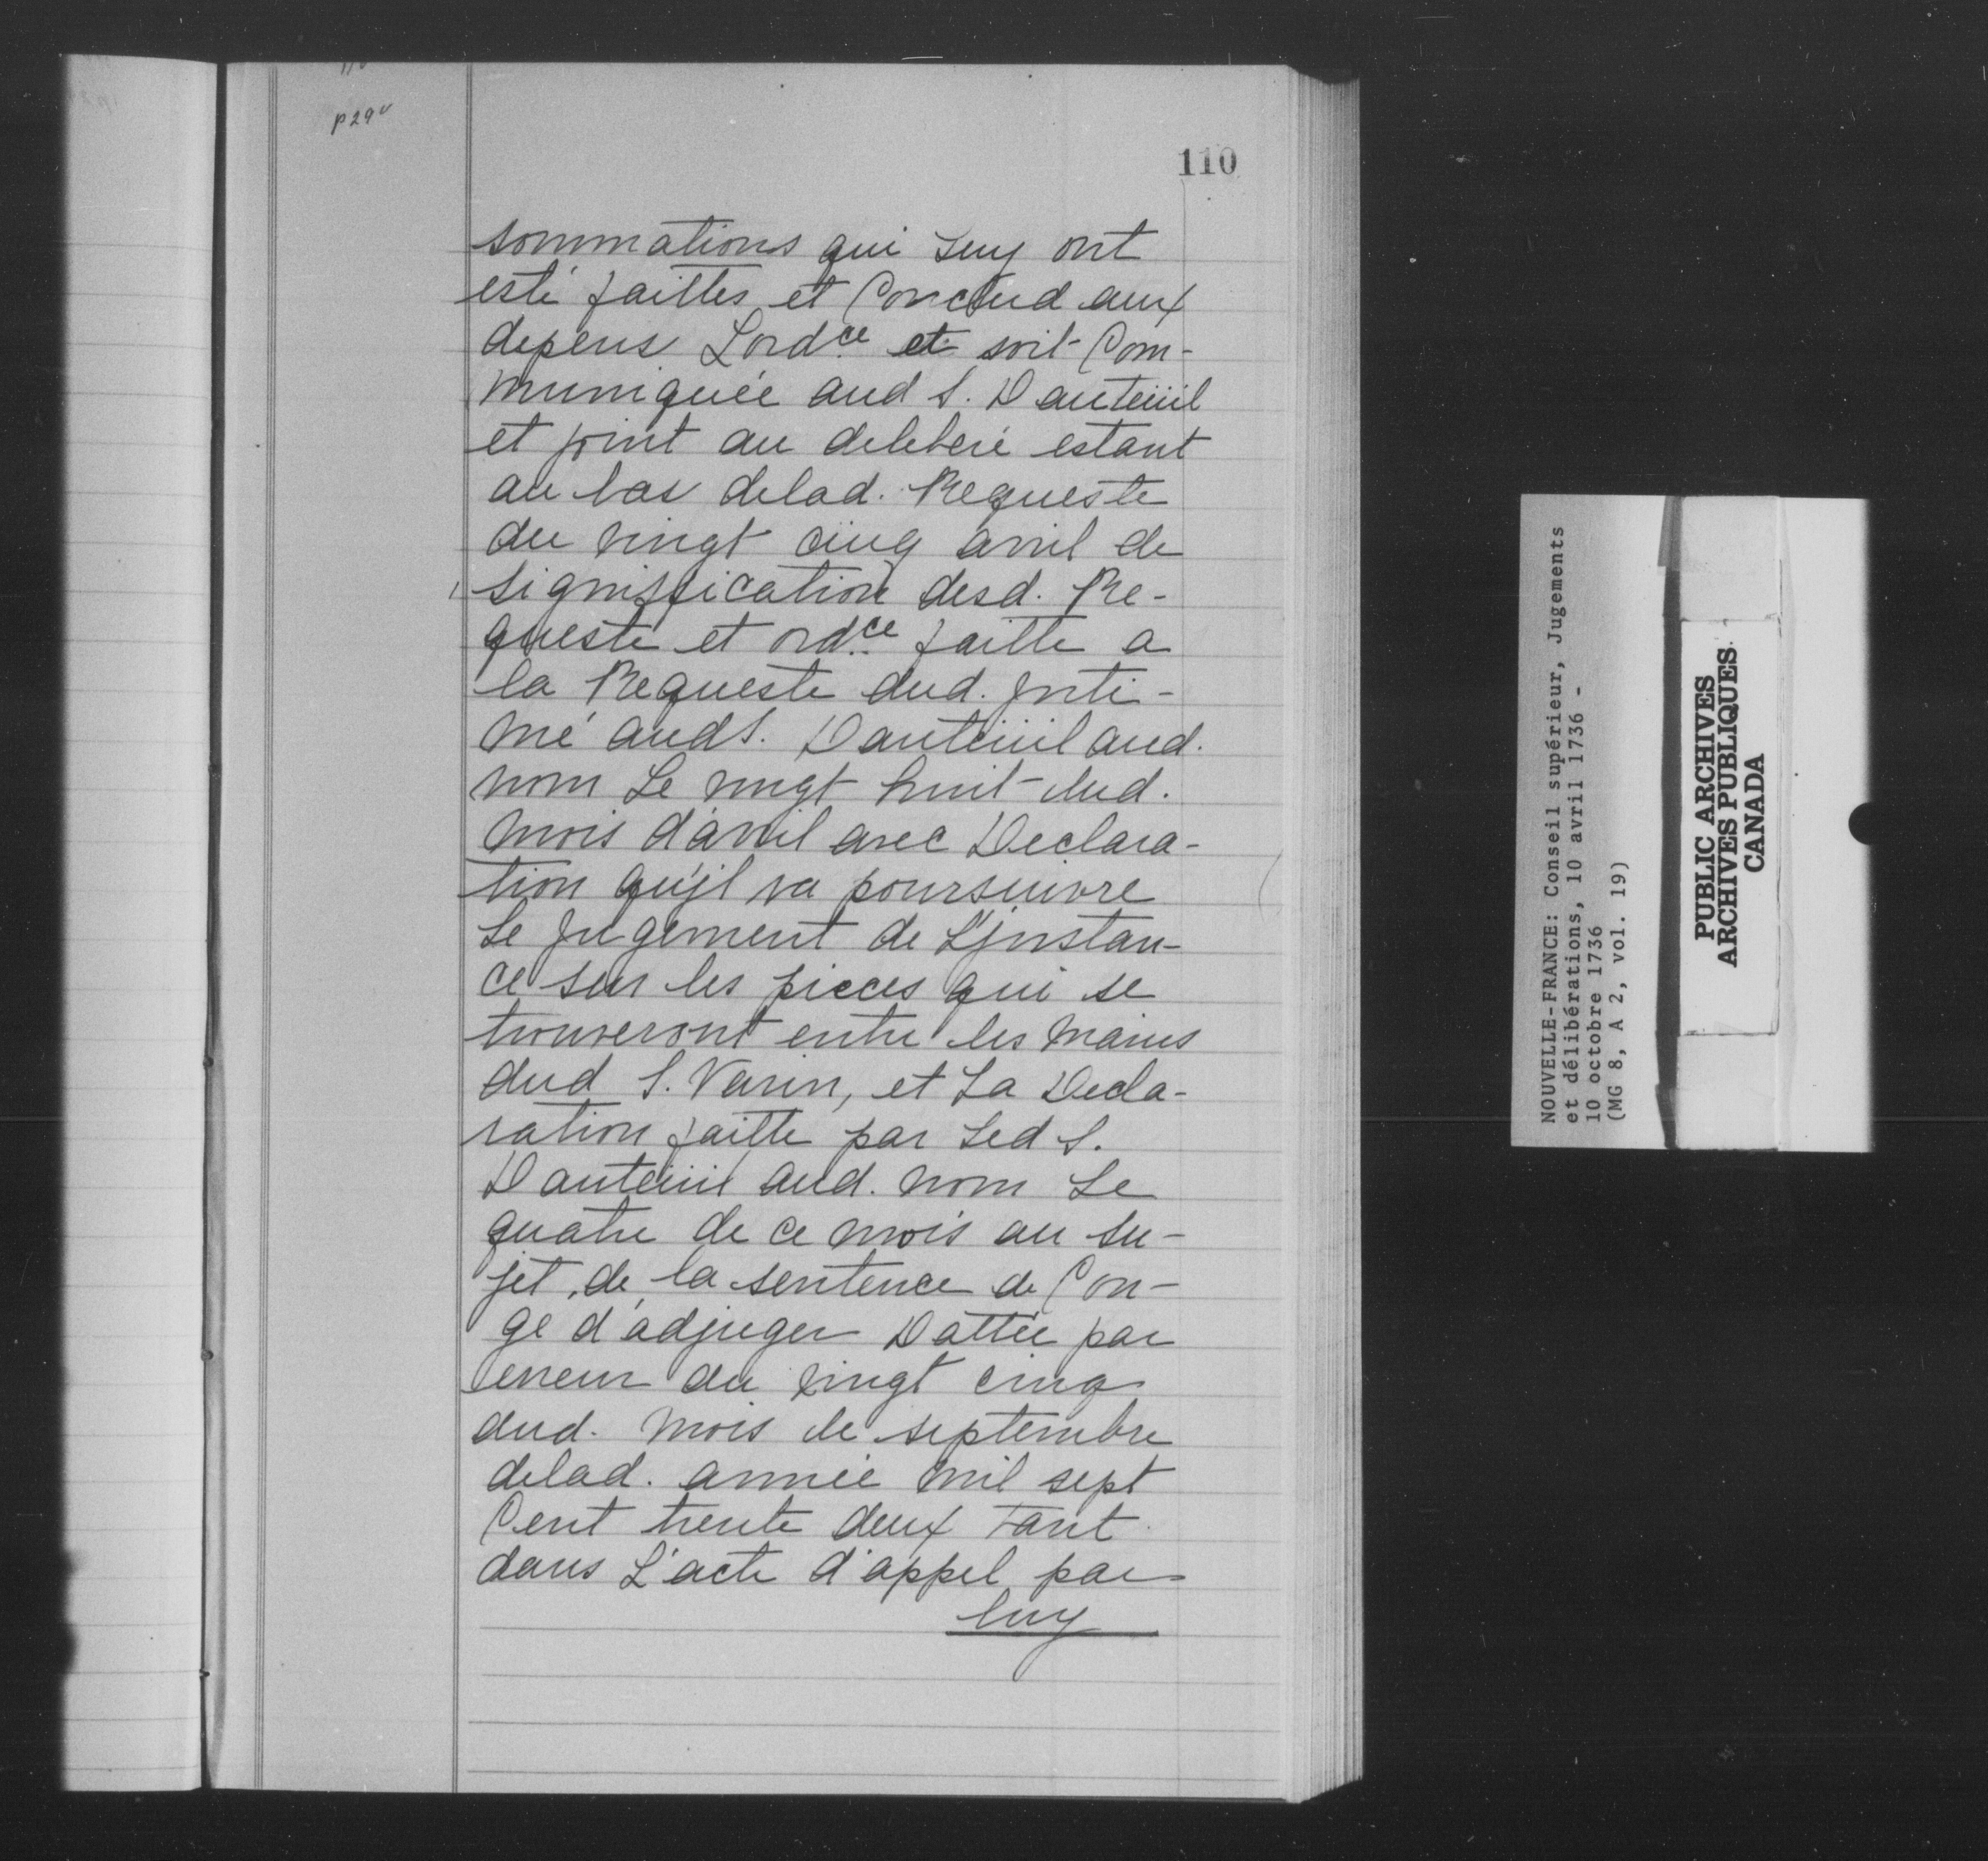 p29v
110
sommations qui Luy ont
esté faittes et Conclud aux
depens Lordce et soit Com-
muniquée aud S. Dauteüil
et joint au deleberé estant
au bas delad. Requeste
du vingt cinq avril de
signiffication desd. Re-
queste et ordce faitte a
la Requeste dud. jnti-
mé aud S. Dauteüil aud.
nom Le vingt huit dud.
mois d'avril avec Declara-
tion qu'jl va poursuivre
Le jugement de L'jnstan-
ce sur les pieces qui se
trouveront entre les mains
dud S. Varin, et La Decla-
ration faitte par Led S.
Dauteüil aud. nom Le
quatre de ce mois au su-
jet de la sentence de Con-
gé d'adjuger Dattée par
erreur du vingt cinq
dud. mois de septembre
delad. année mil sept
Cent trente deux Tant
dans L'acte d'appel par
luy
NOUVELLE-FRANCE: Conseil supérieur, Jugements
et délibérations, 10 avril 1736 -
10 octobre 1736
(MG 8, A 2, vol. 19)
PUBLIC ARCHIVES
ARCHIVES PUBLIQUES
CANADA